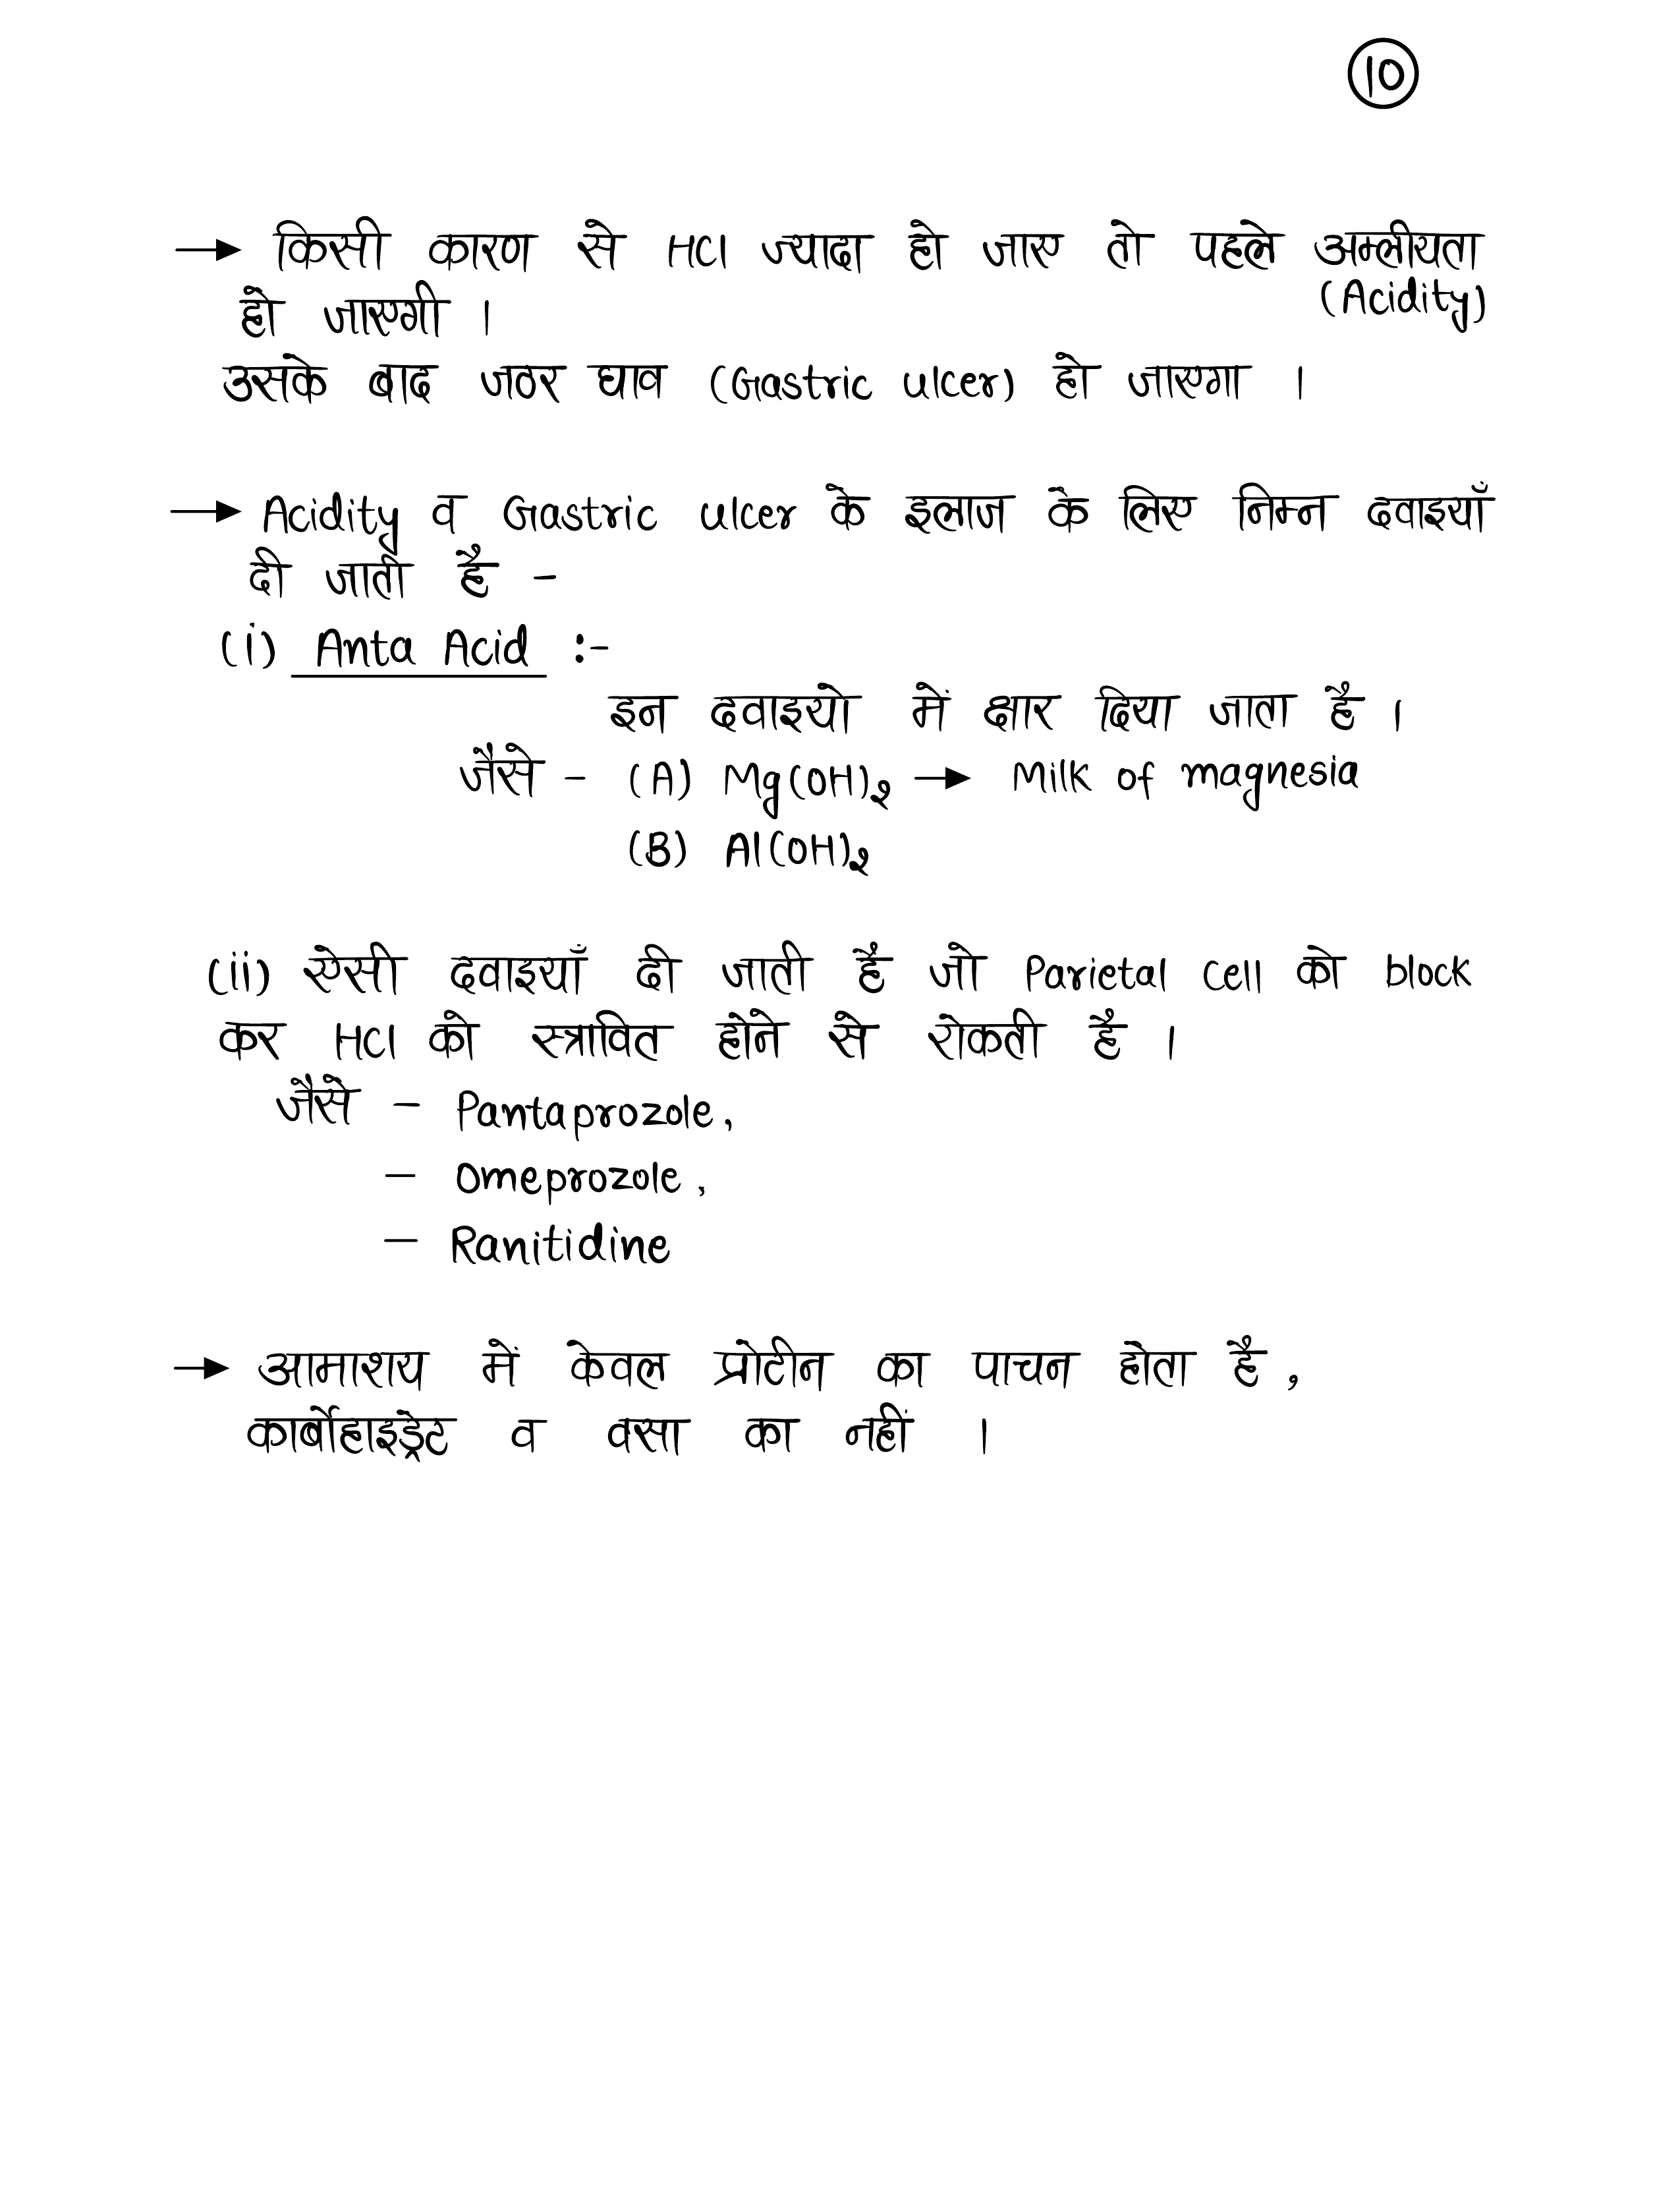 10
→ किसी कारण से HCl ज्यादा हो जाए तो पहले अम्लीयता
(Acidity)
हो जाएगी ।
उसके बाद जठर घाव (Gastric ulcer) हो जाएगा ।
→ Acidity व Gastric ulcer के इलाज के लिए निम्न दवाइयाँ
दी जाती है -
(i) Anta Acid :-
इन दवाइयो में क्षार दिया जाता है ।
जैसे - (A) Mg(OH)₂ → Milk of magnesia
(B) Al(OH)₂
(ii) ऐसी दवाइयाँ दी जाती हैं जो Parietal Cell को block
कर HCl को स्त्रावित होने से रोकती है ।
जैसे - Pantaprozole,
- Omeprozole,
- Ranitidine
→ आमाशय में केवल प्रोटीन का पाचन होता है,
कार्बोहाइड्रेट व वसा का नहीं ।